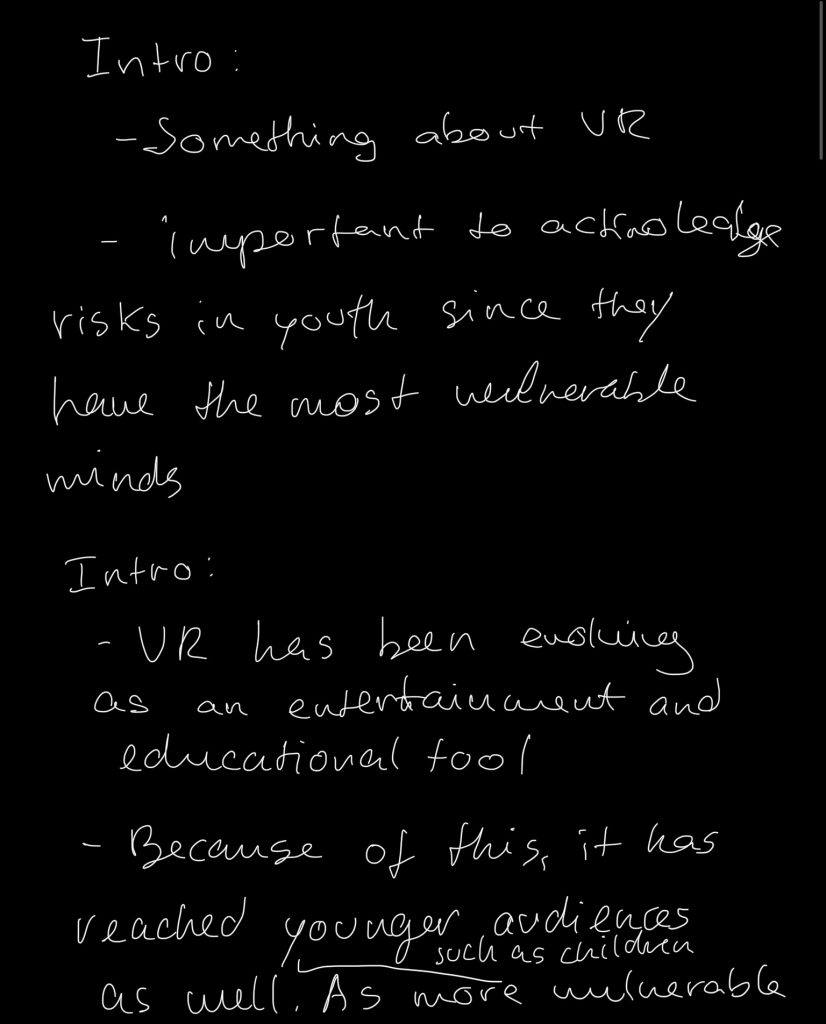 Intro:
- Something about VR
- important to acknoledge
risks in youth since they
have the most vulnerable
minds
Intro:
- VR has been evolving
as an entertainment and
educational tool
- Because of this, it has
reached younger audiences
such as children
as well. As more vulnerable